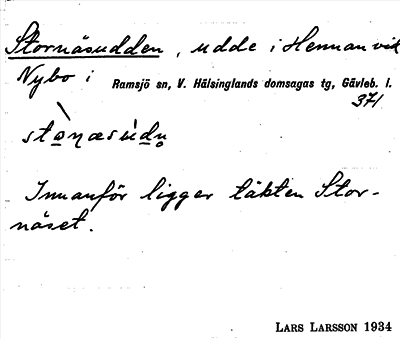 Stornäsudden, udde i Hennan vid
Nybo i Ramsjö sn, V. Hälsinglands domsagas tg, Gävleb. l.
371
Innanför ligger täkten Stor-
näset.
LARS LARSSON 1934